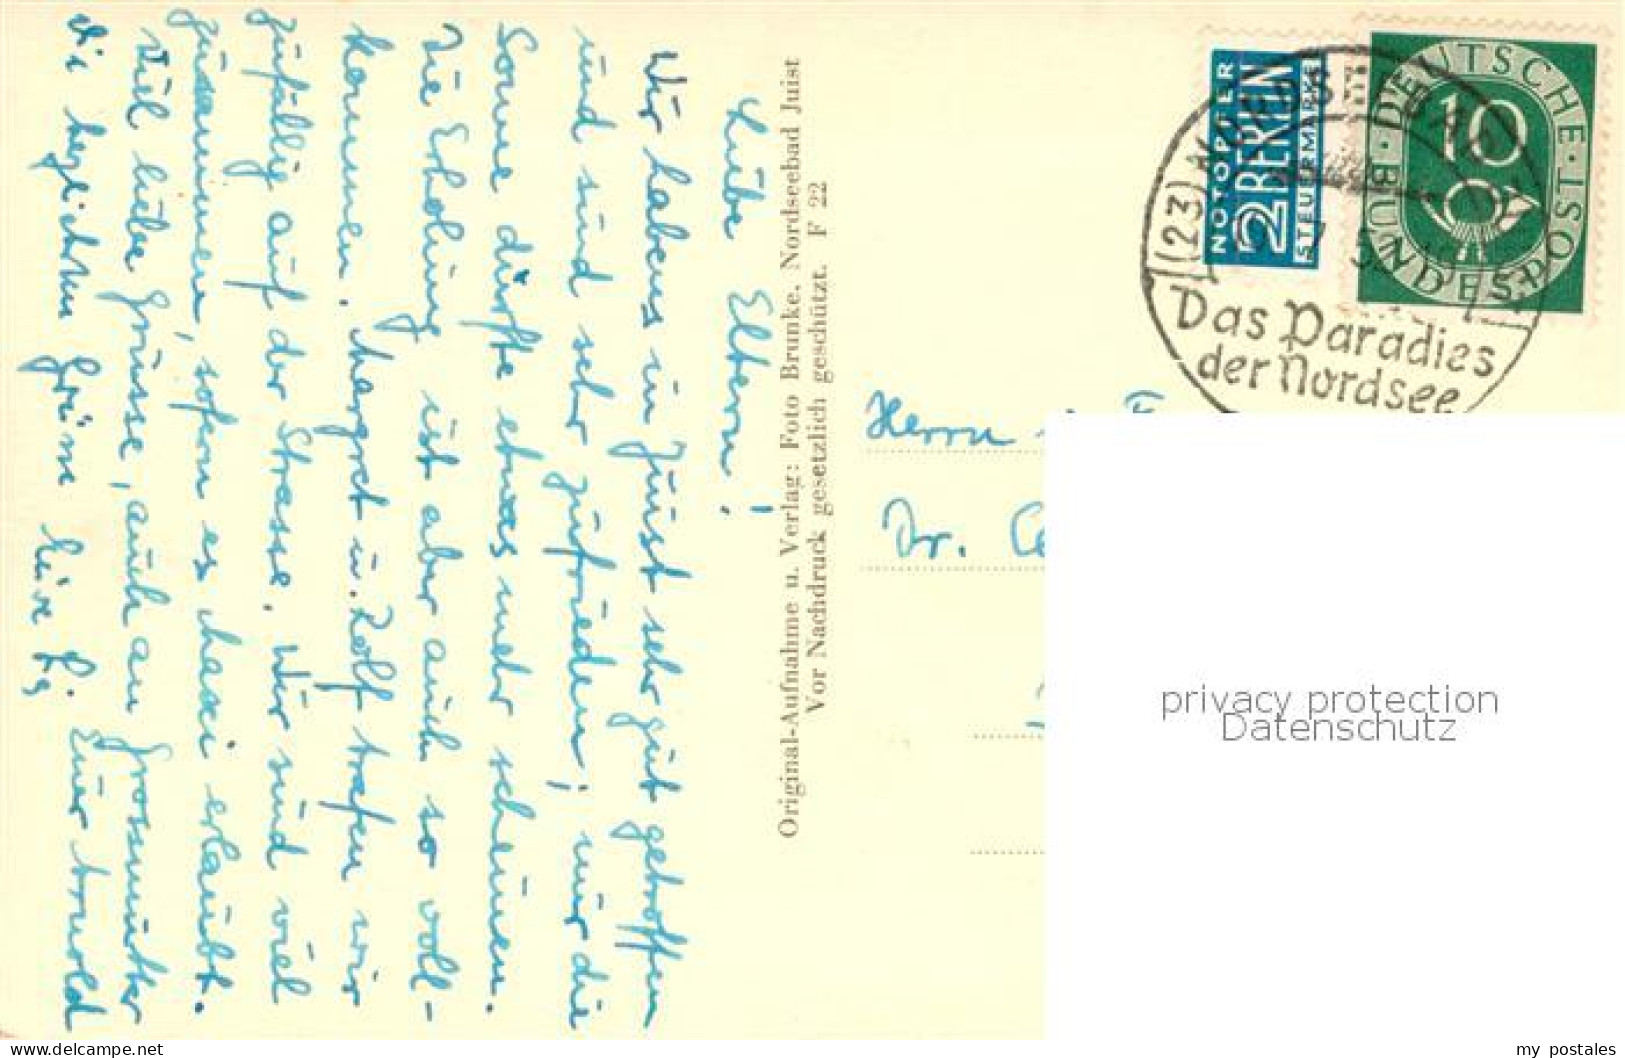 Liebe Eltern!
Wir habens in Juist sehr gut getroffen
und sind sehr zufrieden; nur die
Sonne dürfte etwas mehr scheinen.
Die Erholung ist aber auch so voll-
kommen. Margret u. Rolf trafen wir
zufällig auf der Strasse. Wir sind viel
zusammen, sofern es Maxi erlaubt.
Viel liebe Grüsse, auch an Grossmutter
Euer
Die herzlichsten Grüsse Eure
Original-Aufnahme u. Verlag: Foto Brunke, Nordseebad Juist
Vor Nachdruck gesetzlich geschützt. F 22
NOTOPFER
2 BERLIN
STEUERMARKE
DEUTSCHE BUNDESPOST
10
(23)
Das Paradies
der Nordsee
Herrn
Dr.
privacy protection
Datenschutz
www.delcampe.net
my_postales